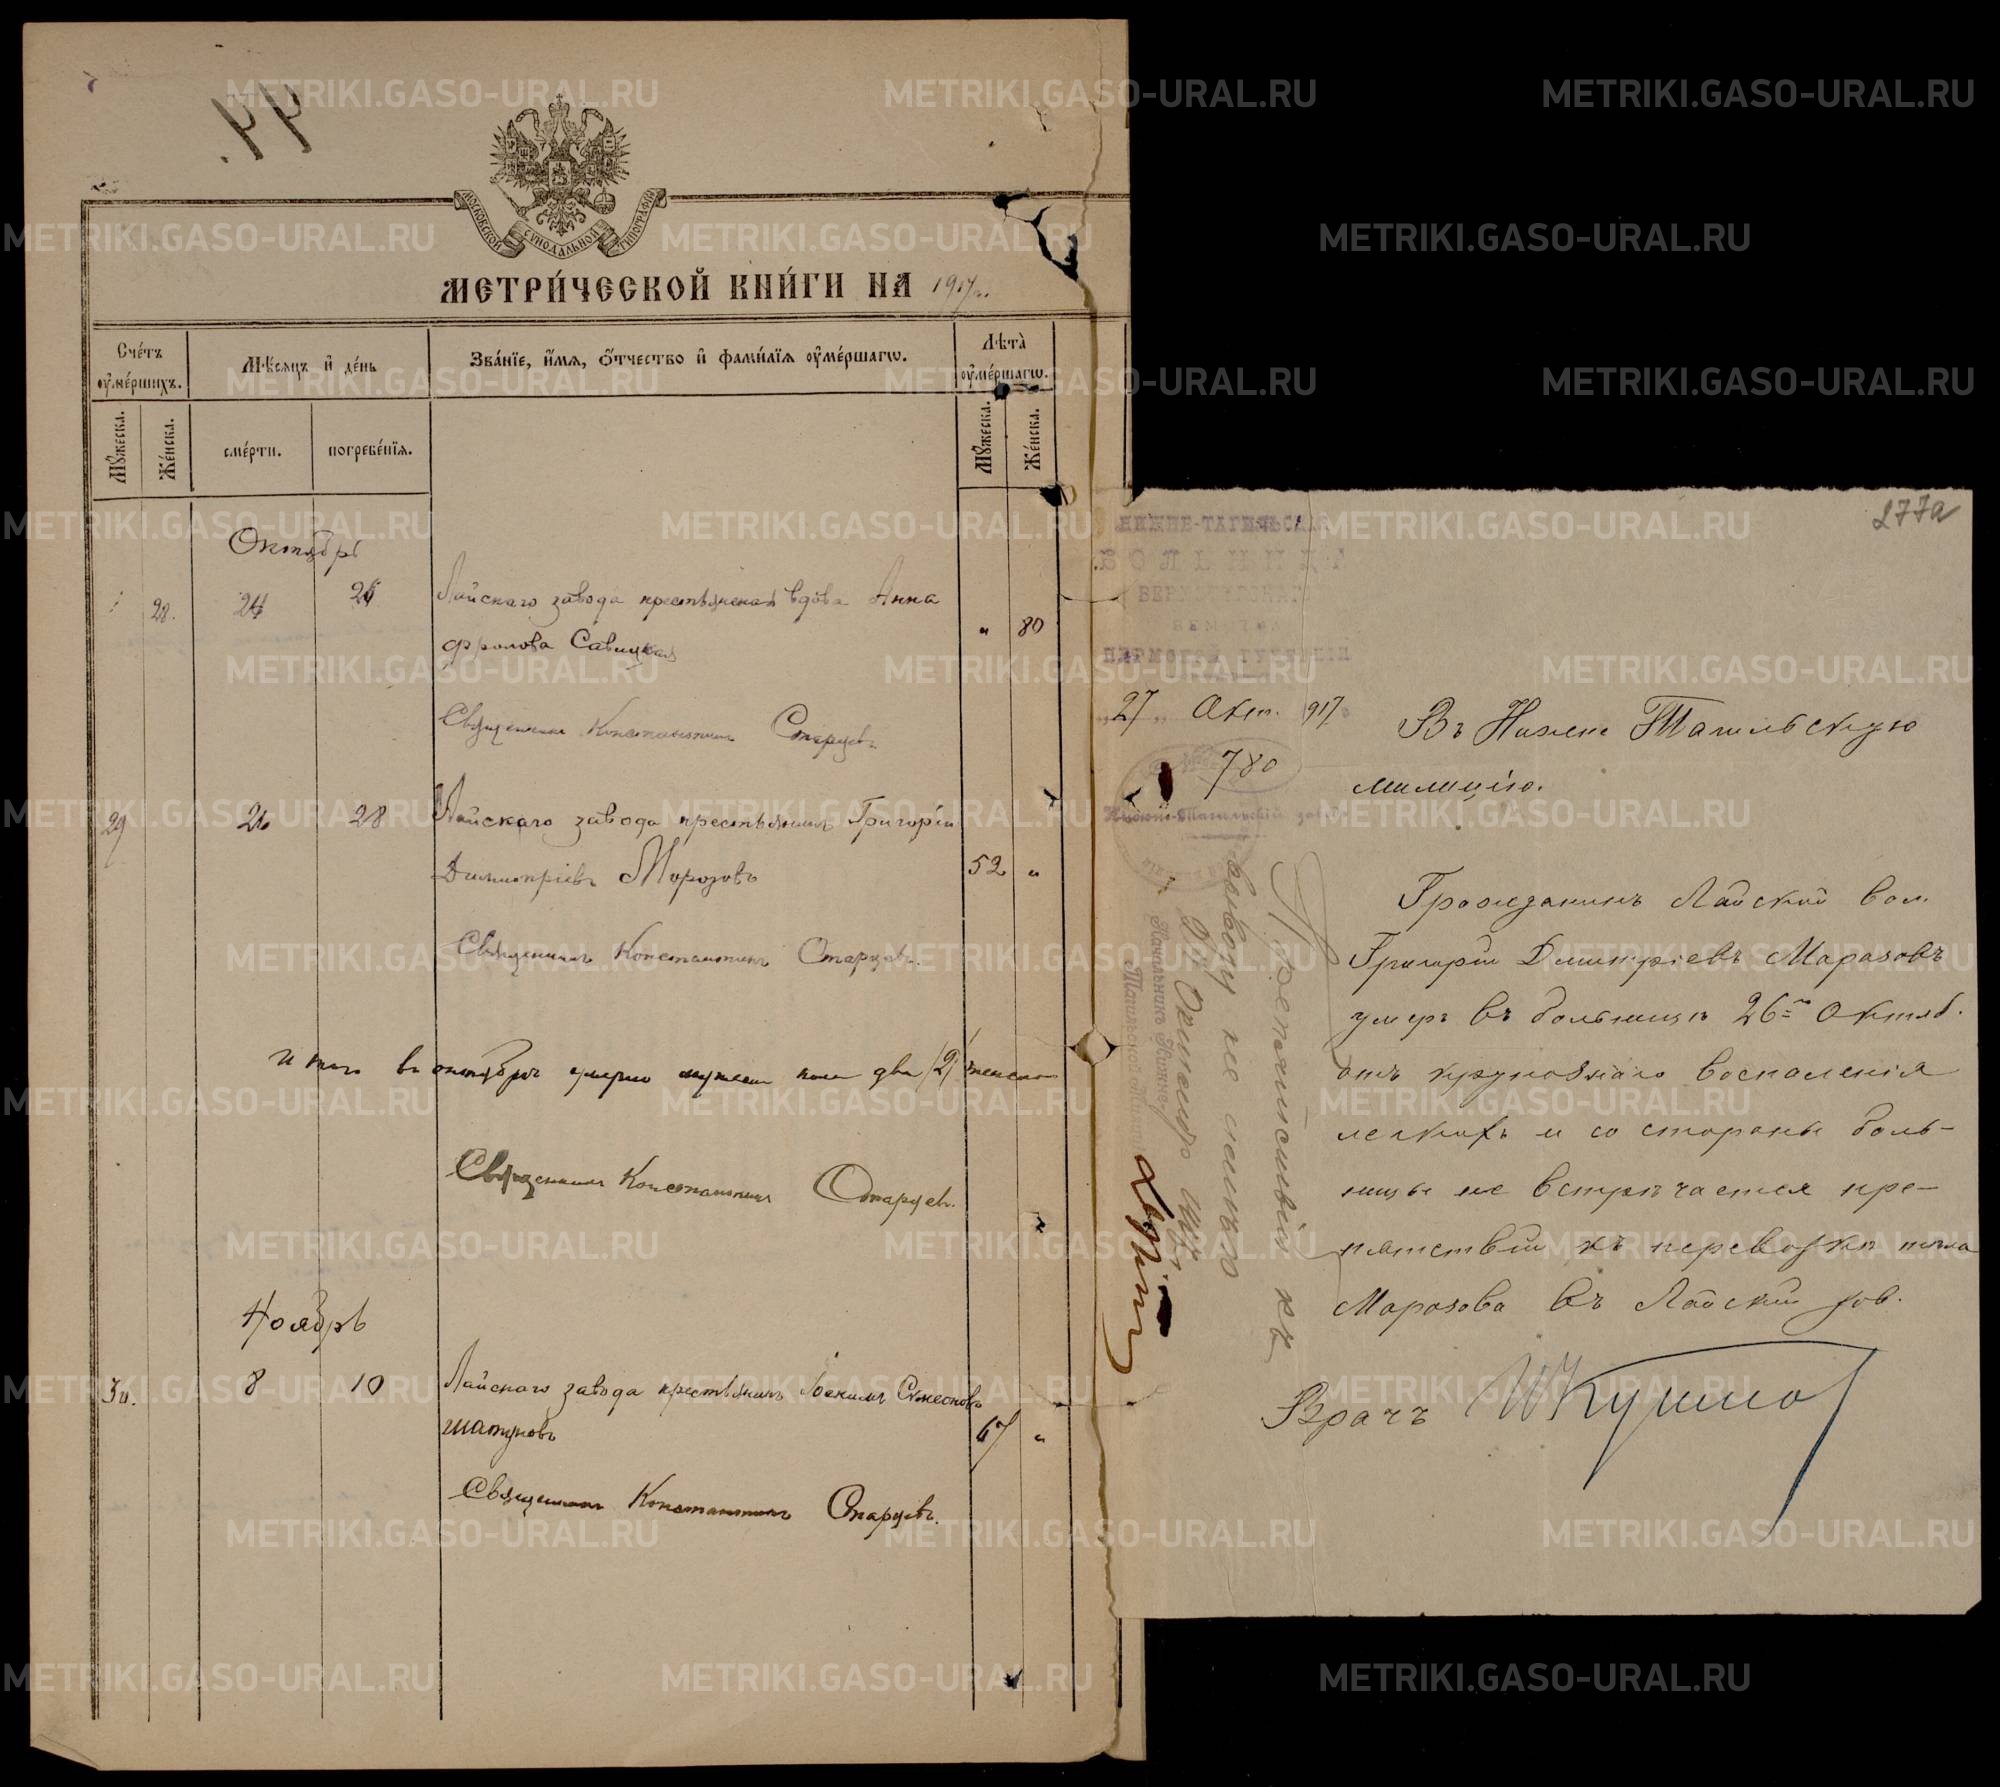 МОСКОВСКОЙ СѴНОДАЛЬНОЙ ТИПОГРАФІИ
МЕТРИ́ЧЕСКОЙ КНИ́ГИ НА 1917 г.
Сче́тъ оу҆ме́ршихъ.
Мѣ́сяцъ и҆ де́нь
Зва́нїе, и҆́мя, ѻ҆́тчество и҆ фами́лїя оу҆ме́ршагѡ.
Лѣта̀ оу҆ме́ршагѡ.
Мꙋ́жеска.
Же́нска.
сме́рти.
погребе́нїя.
Мꙋ́жеска.
Же́нска.
Октябрь
28. 24 26 Лайскаго завода крестьянская вдова Анна
Фролова Савицкая " 80
Священникъ Константинъ Старцевъ
29 26 28 Лайскаго завода крестьянинъ Григорій
Димитріевъ Морозовъ 52 "
Священникъ Константинъ Старцевъ.
Итого въ октябрѣ умерло мужеска пола два /2/ женска
Священникъ Константинъ Старцевъ.
Ноябрь
30. 8 10 Лайскаго завода крестьянинъ Іоакимъ Семеновъ
Шатуновъ 67 "
Священникъ Константинъ Старцевъ.
277а
НИЖНЕ-ТАГИЛЬСКАЯ
БОЛЬНИЦА
ВЕРХОТУРСКАГО
ЗЕМСТВА
ПЕРМСКОЙ ГУБЕРНІИ
"27" Окт. 1917
780
Нижне-Тагильскій заводъ
Въ Нижне Тагильскую
милицію.
Гражданинъ Лайской вол.
Григорій Дмитріевъ Марозовъ
умеръ въ больницѣ 26го Октяб.
отъ крупознаго воспаленія
легкихъ и со стороны боль-
ницы не встрѣчается пре-
пятствій къ перевозкѣ тѣла
Марозова въ Лайскій зав.
Врачъ
Препятствій къ
вывозу не имѣю
27 Октября
Начальникъ
METRIKI.GASO-URAL.RU